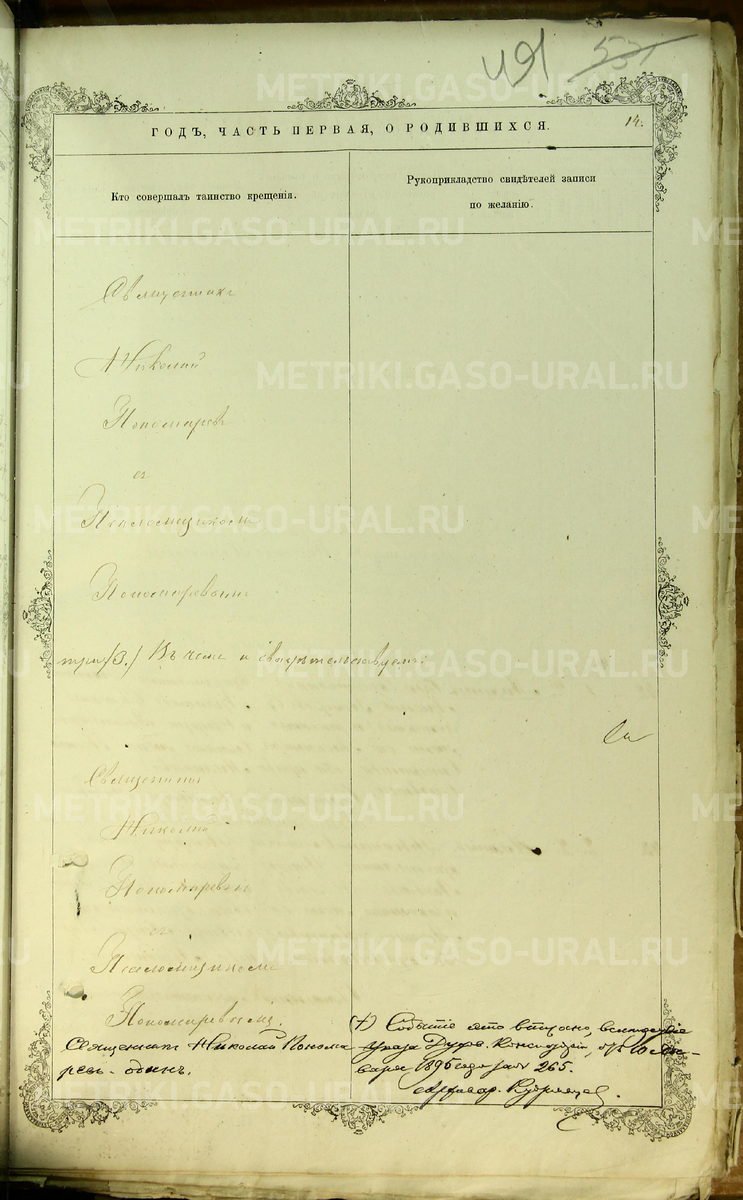 491 537
ГОДЪ, ЧАСТЬ ПЕРВАЯ, О РОДИВШИХСЯ.
14.
Кто совершалъ таинство крещенія.
Рукоприкладство свидѣтелей записи
по желанію.
Священникъ
Николай
Пономаревъ
съ
Псаломщикомъ
Пономаревымъ
три /3./ Въ чемъ и свидѣтельствуемъ:
Священникъ
Николай
Пономаревъ
съ
Псаломщикомъ
Пономаревымъ.
Священникъ Николай Понома
ревъ - одинъ.
+) Событіе это вписано, вслѣдствіе
указа Духов. Консисторіи, отъ 10 Ян-
варя 1895 года за № 265.
METRIKI.GASO-URAL.RU